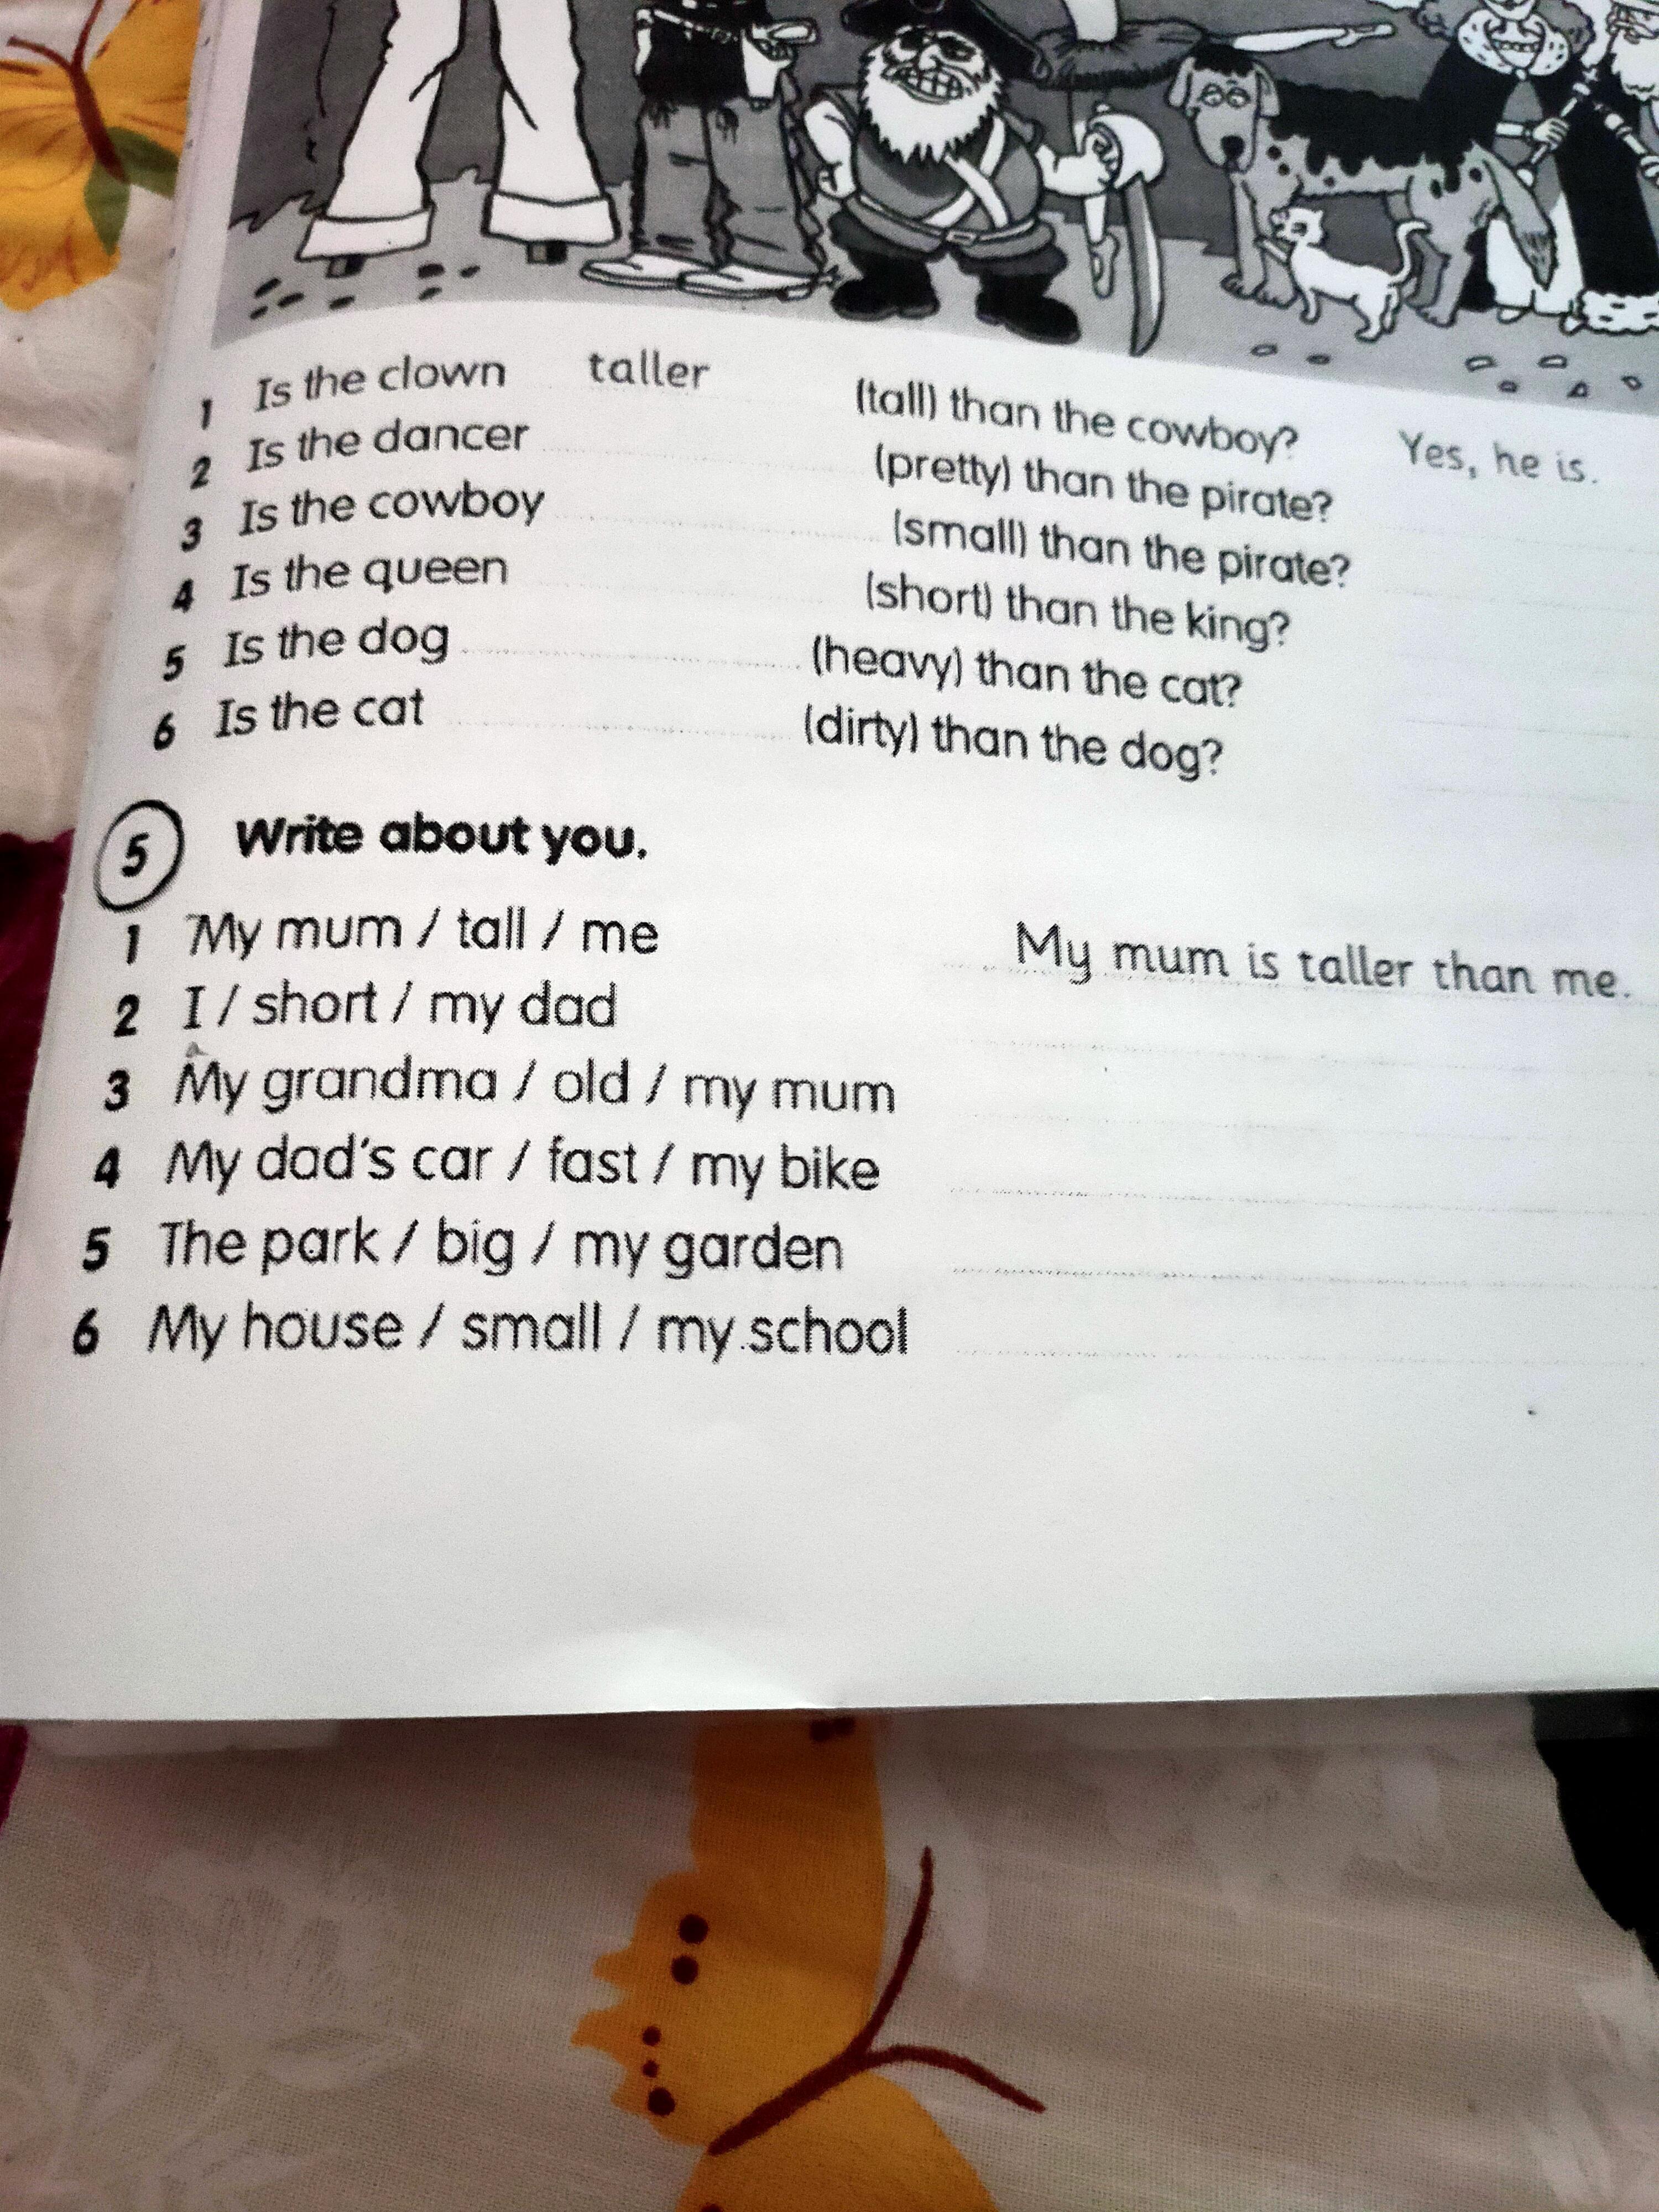 1 Is the clown taller (tall) than the cowboy? Yes, he is.
2 Is the dancer (pretty) than the pirate?
3 Is the cowboy (small) than the pirate?
4 Is the queen (short) than the king?
5 Is the dog (heavy) than the cat?
6 Is the cat (dirty) than the dog?
5 Write about you.
1 My mum / tall / me My mum is taller than me.
2 I / short / my dad
3 My grandma / old / my mum
4 My dad's car / fast / my bike
5 The park / big / my garden
6 My house / small / my school